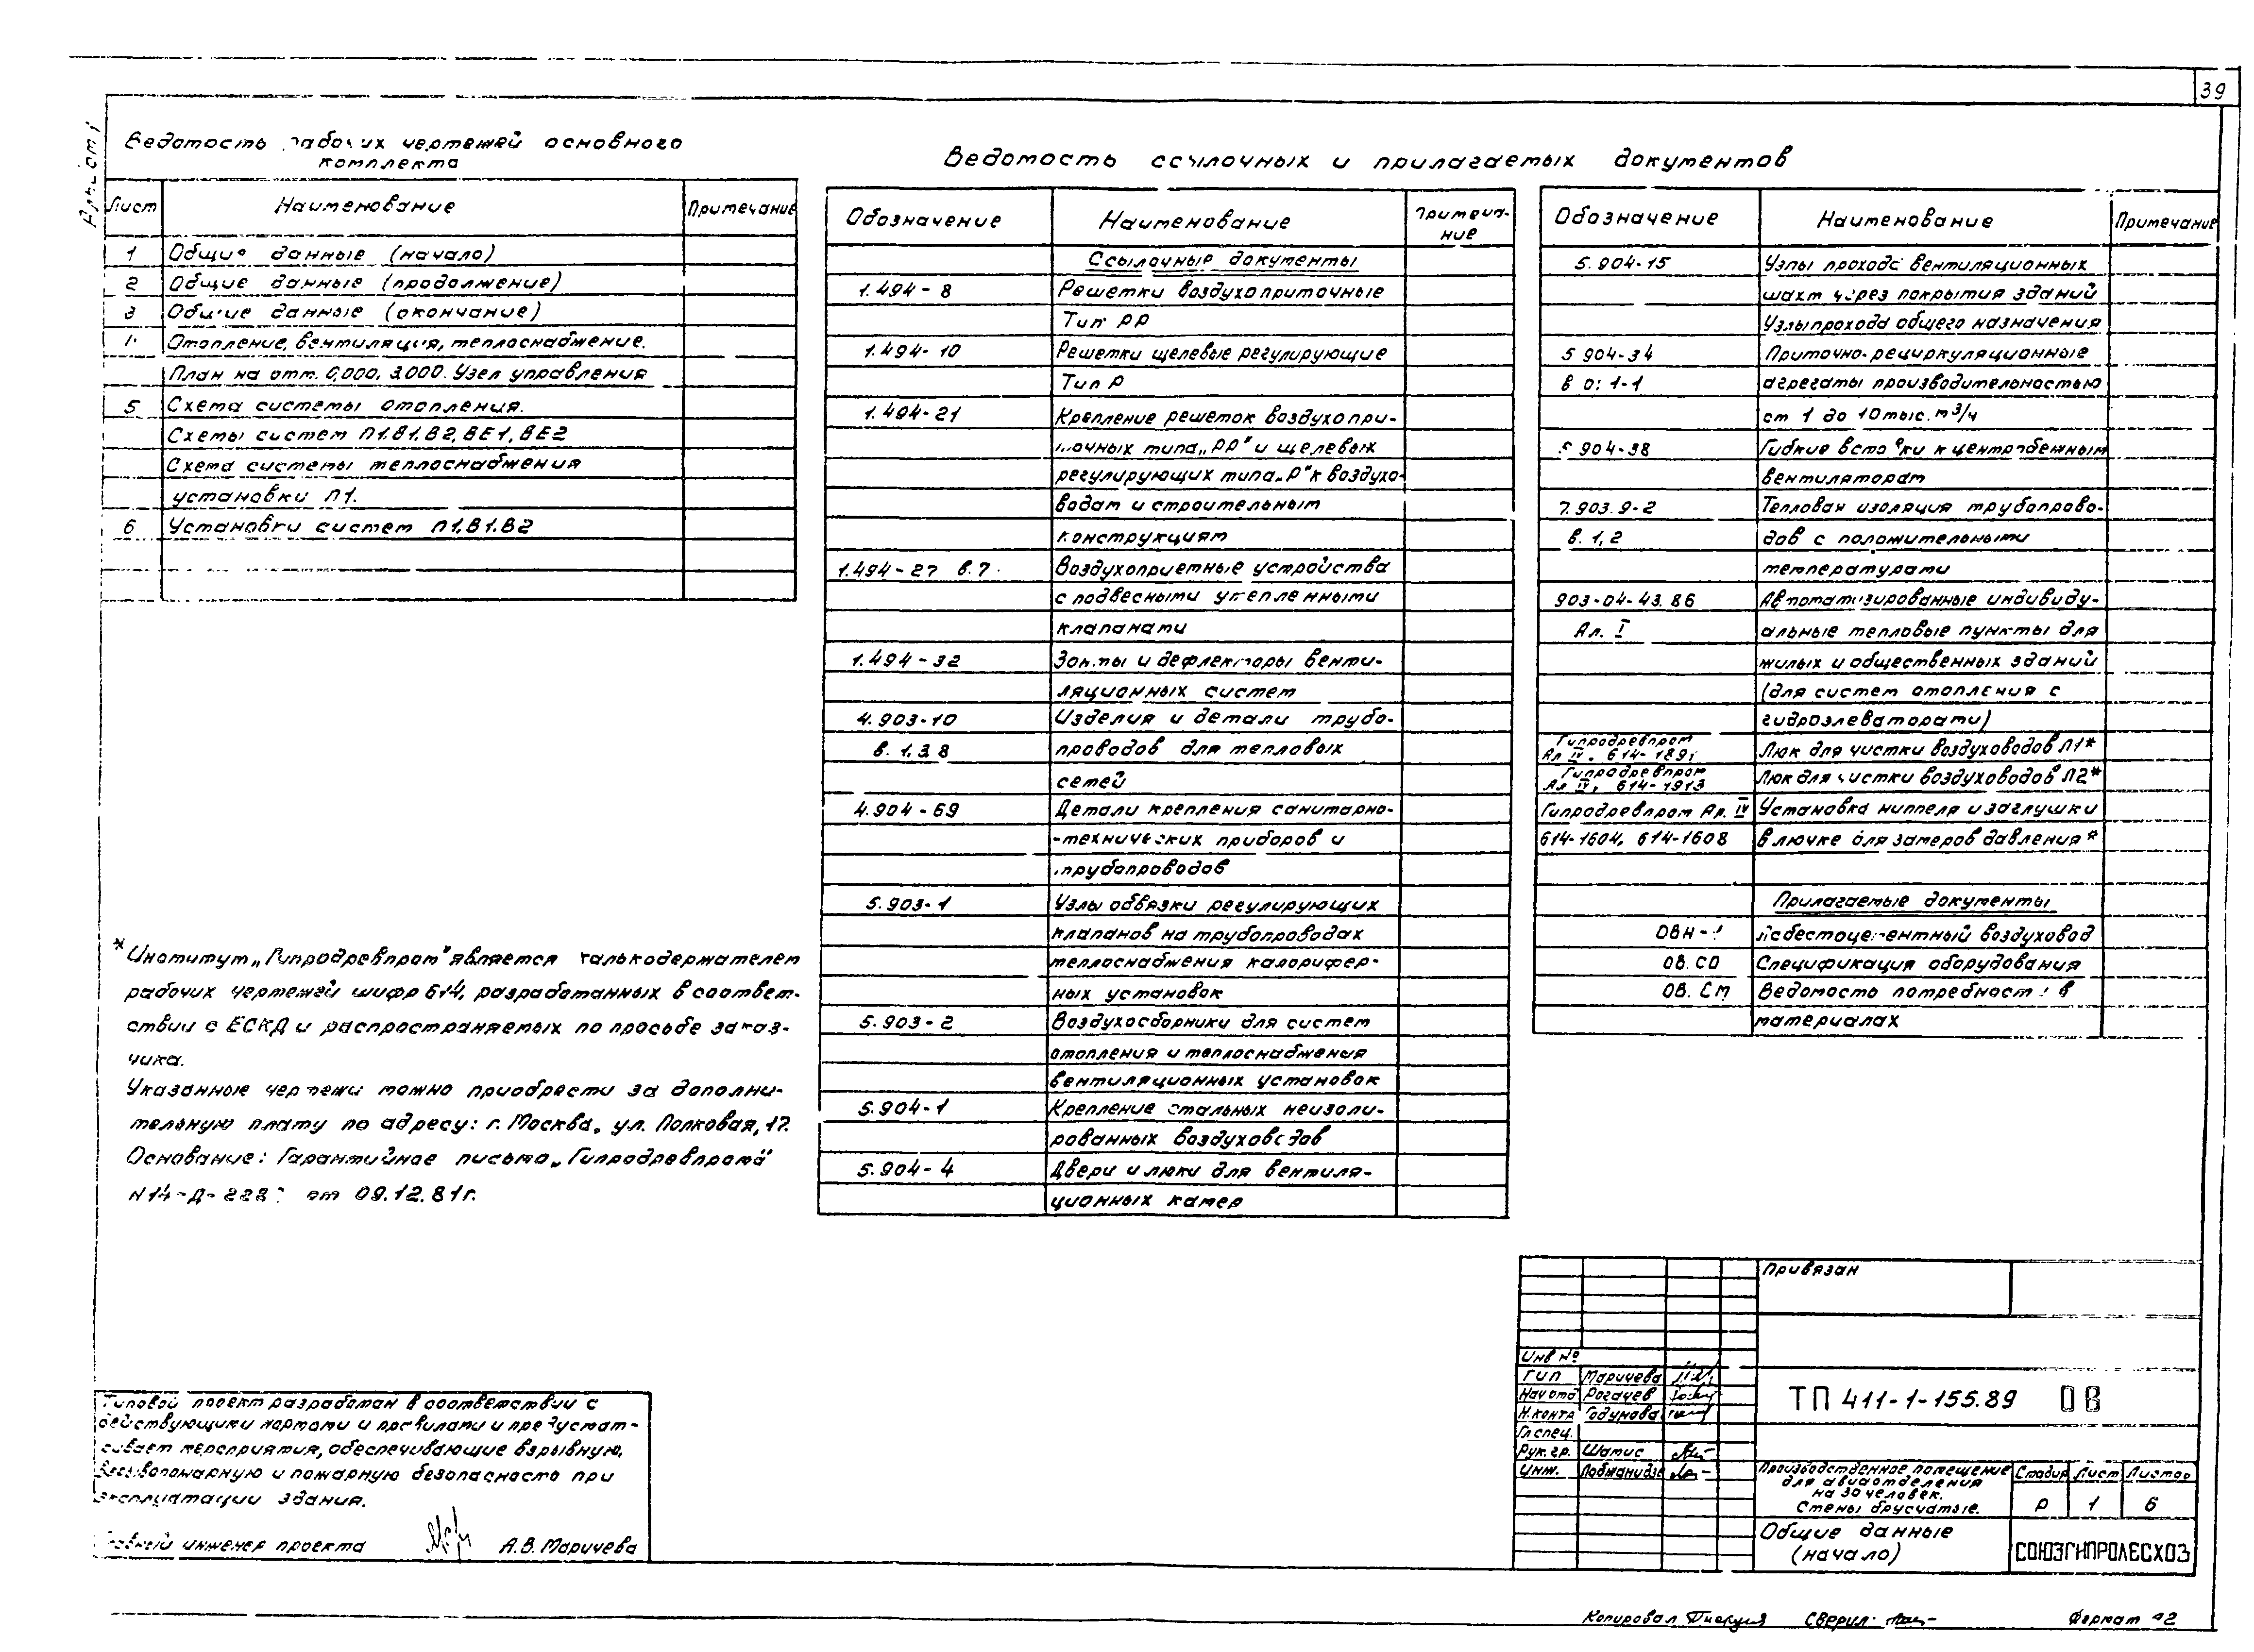 39
Альбом I
Ведомость рабочих чертежей основного
комплекта
Лист Наименование Примечание
1 Общие данные (начало)
2 Общие данные (продолжение)
3 Общие данные (окончание)
Отопление, вентиляция, теплоснабжение.
План на отм. 0,000, 3.000. Узел управления
5 Схема системы отопления.
Схемы систем П1.В1.В2, ВЕ1, ВЕ2
Схема системы теплоснабжения
установки П1.
6 Установки систем П1.В1.В2
* Институт „Гипродревпром" является калькодержателем
рабочих чертежей шифр 614, разработанных в соответ-
ствии с ЕСКД и распространяемых по просьбе заказ-
чика.
Указанные чертежи можно приобрести за дополни-
тельную плату по адресу: г. Москва, ул. Полковая, 17.
Основание: Гарантийное письмо „Гипродревпрома"
от 09.12.81г.
Типовой проект разработан в соответствии с
действующими нормами и правилами и предусмат-
ривает мероприятия, обеспечивающие взрывную,
взрывопожарную и пожарную безопасность при
эксплуатации здания.
Главный инженер проекта А.В. Маричева
Ведомость ссылочных и прилагаемых документов
Обозначение Наименование Примеча-
ние
Ссылочные документы
1.494-8 Решетки воздухоприточные
Тип РР
1.494-10 Решетки щелевые регулирующие
Тип Р
1.494-21 Крепление решеток воздухопри-
точных типа „РР" и щелевых
регулирующих типа „Р" к воздухо-
водам и строительным
конструкциям
1.494-27 в.7. Воздухоприемные устройства
с подвесными утепленными
клапанами
1.494-32 Зонты и дефлекторы венти-
ляционных систем
4.903-10 Изделия и детали трубо-
в. 1.3.8 проводов для тепловых
сетей
4.904-69 Детали крепления санитарно-
-технических приборов и
трубопроводов
5.903-1 Узлы обвязки регулирующих
клапанов на трубопроводах
теплоснабжения калорифер-
ных установок
5.903-2 Воздухосборники для систем
отопления и теплоснабжения
вентиляционных установок
5.904-1 Крепление стальных неизоли-
рованных воздуховодов
5.904-4 Двери и люки для вентиля-
ционных камер
Обозначение Наименование Примечание
5.904-15 Узлы прохода вентиляционных
шахт через покрытия зданий
Узлы прохода общего назначения
5 904-34 Приточно-рециркуляционные
в 0: 1-1 агрегаты производительностью
от 1 до 10 тыс. м³/ч
5 904-38 Гибкие вставки к центробежным
вентиляторам
7.903.9-2 Тепловая изоляция трубопрово-
в. 1,2 дов с положительными
температурами
903-04-43.86 Автоматизированные индивиду-
Ал. I альные тепловые пункты для
жилых и общественных зданий
(для систем отопления с
гидроэлеваторами)
Гипродревпром
Ал IV, 614-1891 Люк для чистки воздуховодов Л1*
Гипродревпром
Ал IV, 614-1913 Люк для чистки воздуховодов Л2*
Гипродревпром Ал. IV Установка ниппеля и заглушки
614-1604, 614-1608 в лючке для замеров давления *
Прилагаемые документы
ОВН-1 Асбестоцементный воздуховод
ОВ.СО Спецификация оборудования
ОВ.СМ Ведомость потребности в
материалах
Привязан
Инв №
ГИП Маричева
Нач отд Рогачев
Н.контр Годунова
Гл спец.
Рук.гр. Шапис
Инж.
ТП 411-1-155.89 ОВ
Производственное помещение
для авиаотделения
на 30 человек.
Стены брусчатые.
Стадия Лист Листов
Р 1 6
Общие данные
(начало)
СОЮЗГИПРОЛЕСХОЗ
Копировал Сверил: Формат А2